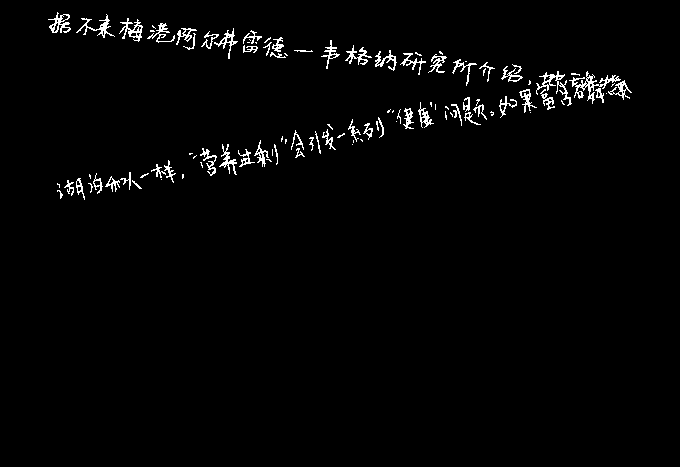 据不来梅港阿尔弗雷德—韦格纳研究所介绍，
湖泊和人一样，“营养过剩”会引发一系列“健康”问题。如果富含